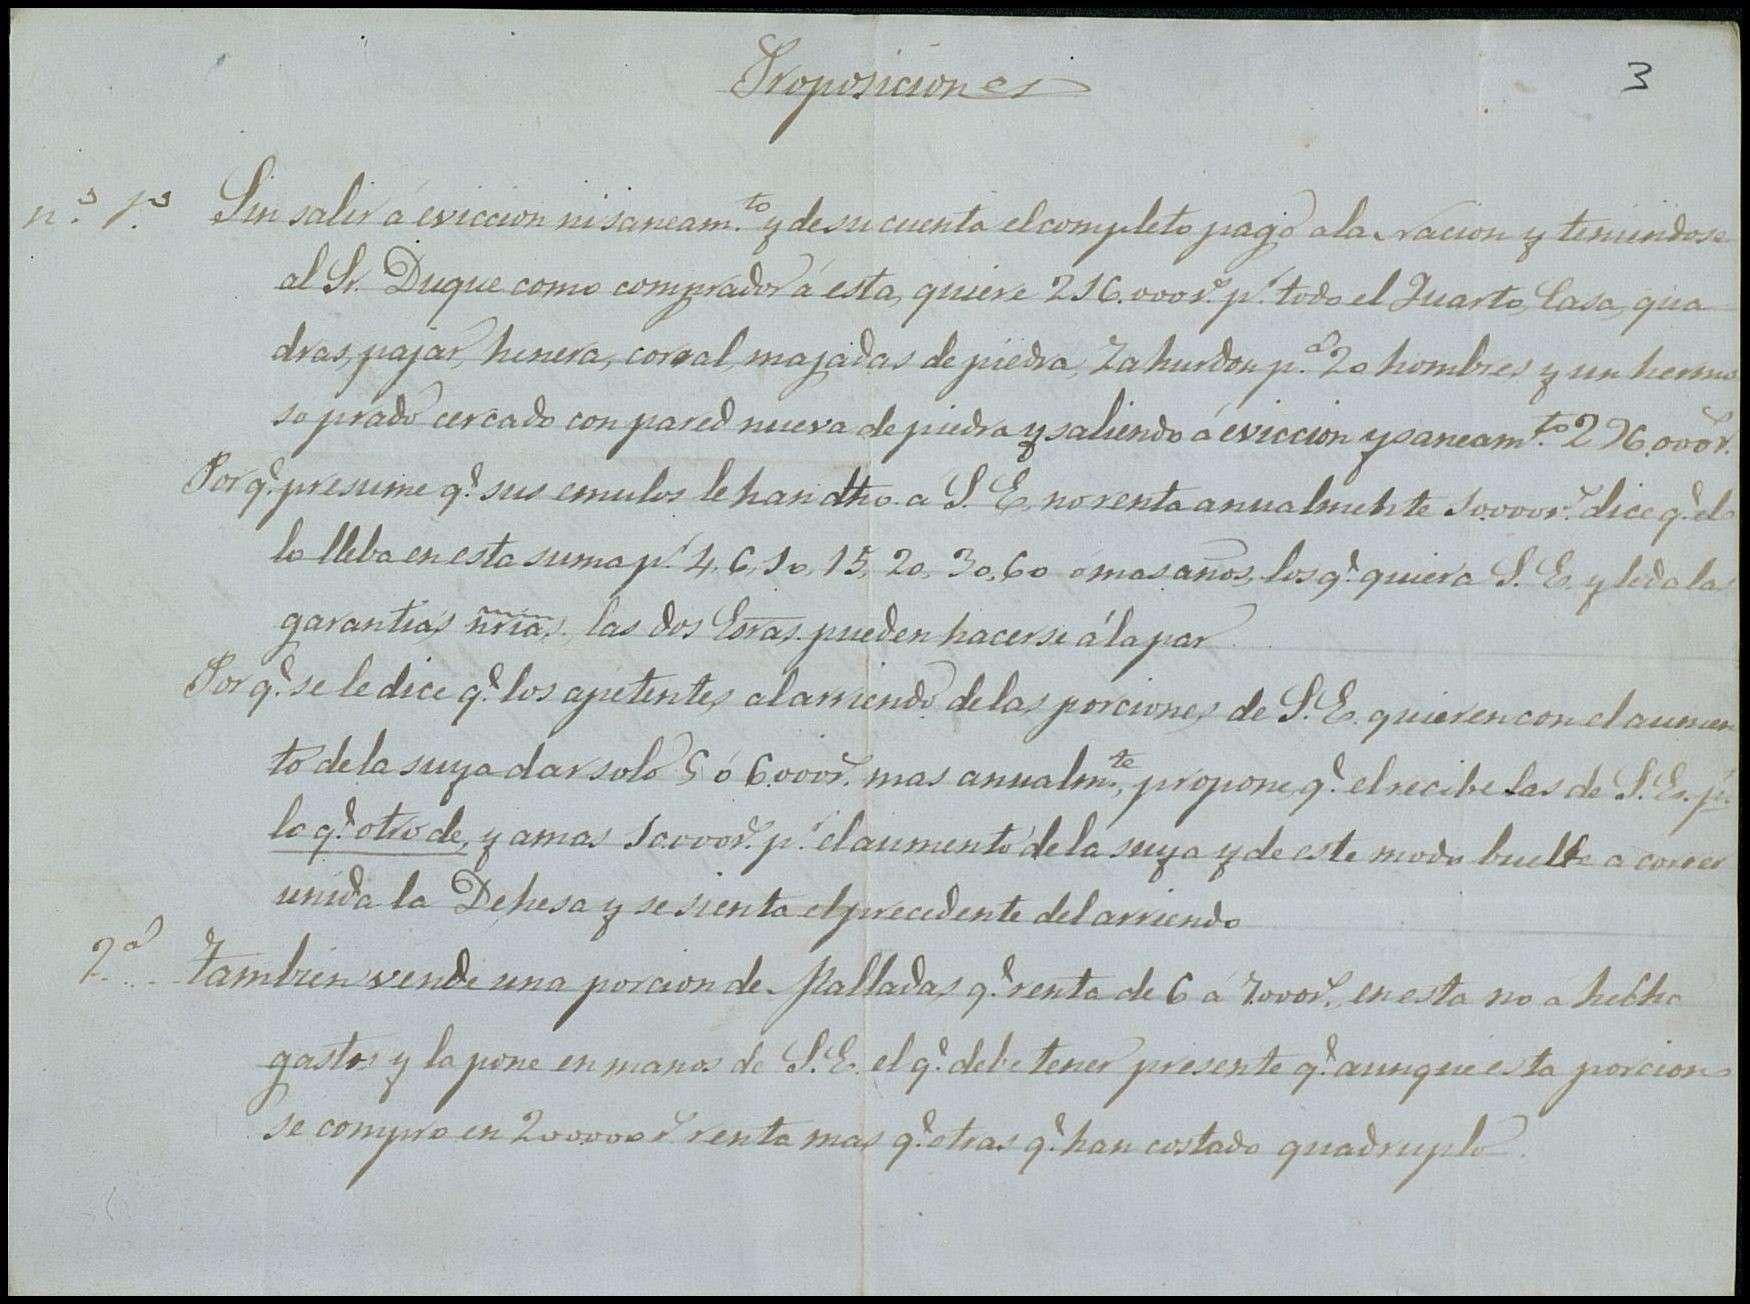 Proposiciones
3
n.º 1.º Sin salir á eviccion ni saneam.to y de su cuenta el completo pago a la nacion y teniendose
al Sr. Duque como comprador á esta, quiere 216.000 r.s p.r todo el Quarto, Casa, qua
dras, pajar, henera, corral, majadas de piedra, Zahurdon p.a 20 hombres y un hermo
so prado cercado con pared nueva de piedra y saliendo á eviccion y saneam.to 296.000 r.s
Porq.e presume q.e sus emulos le han dho. a S. E. no renta anualmente 10.000 r.s dice q.e el
lo lleba en esta suma p.r 4, 6, 10, 15, 20, 30, 60 ó mas años, los q.e quiera S. E. y le da las
garantias nrias., las dos Esras. pueden hacerse á la par
Porq.e se le dice q.e los apetentes al arriendo de las porciones de S. E. quieren con el aumen
to de la suya dar solo 5 ó 6.000 r.s mas anualm.te, propone, q.e el recibe las de S. E. p.r
lo q.e otro de, y amas 10.000 r.s p.r el aumento de la suya y de este modo buelbe a correr
unida la Dehesa y se sienta el precedente del arriendo
2.a Tambien vende una porcion de Malladas q.e renta de 6 á 7.000 r.s, en esta no a hecho
gastos y la pone en manos de S. E. el q.e debe tener presente q.e aunque esta porcion
se compro en 200000 r.s renta mas q.e otras q.e han costado quadruplo